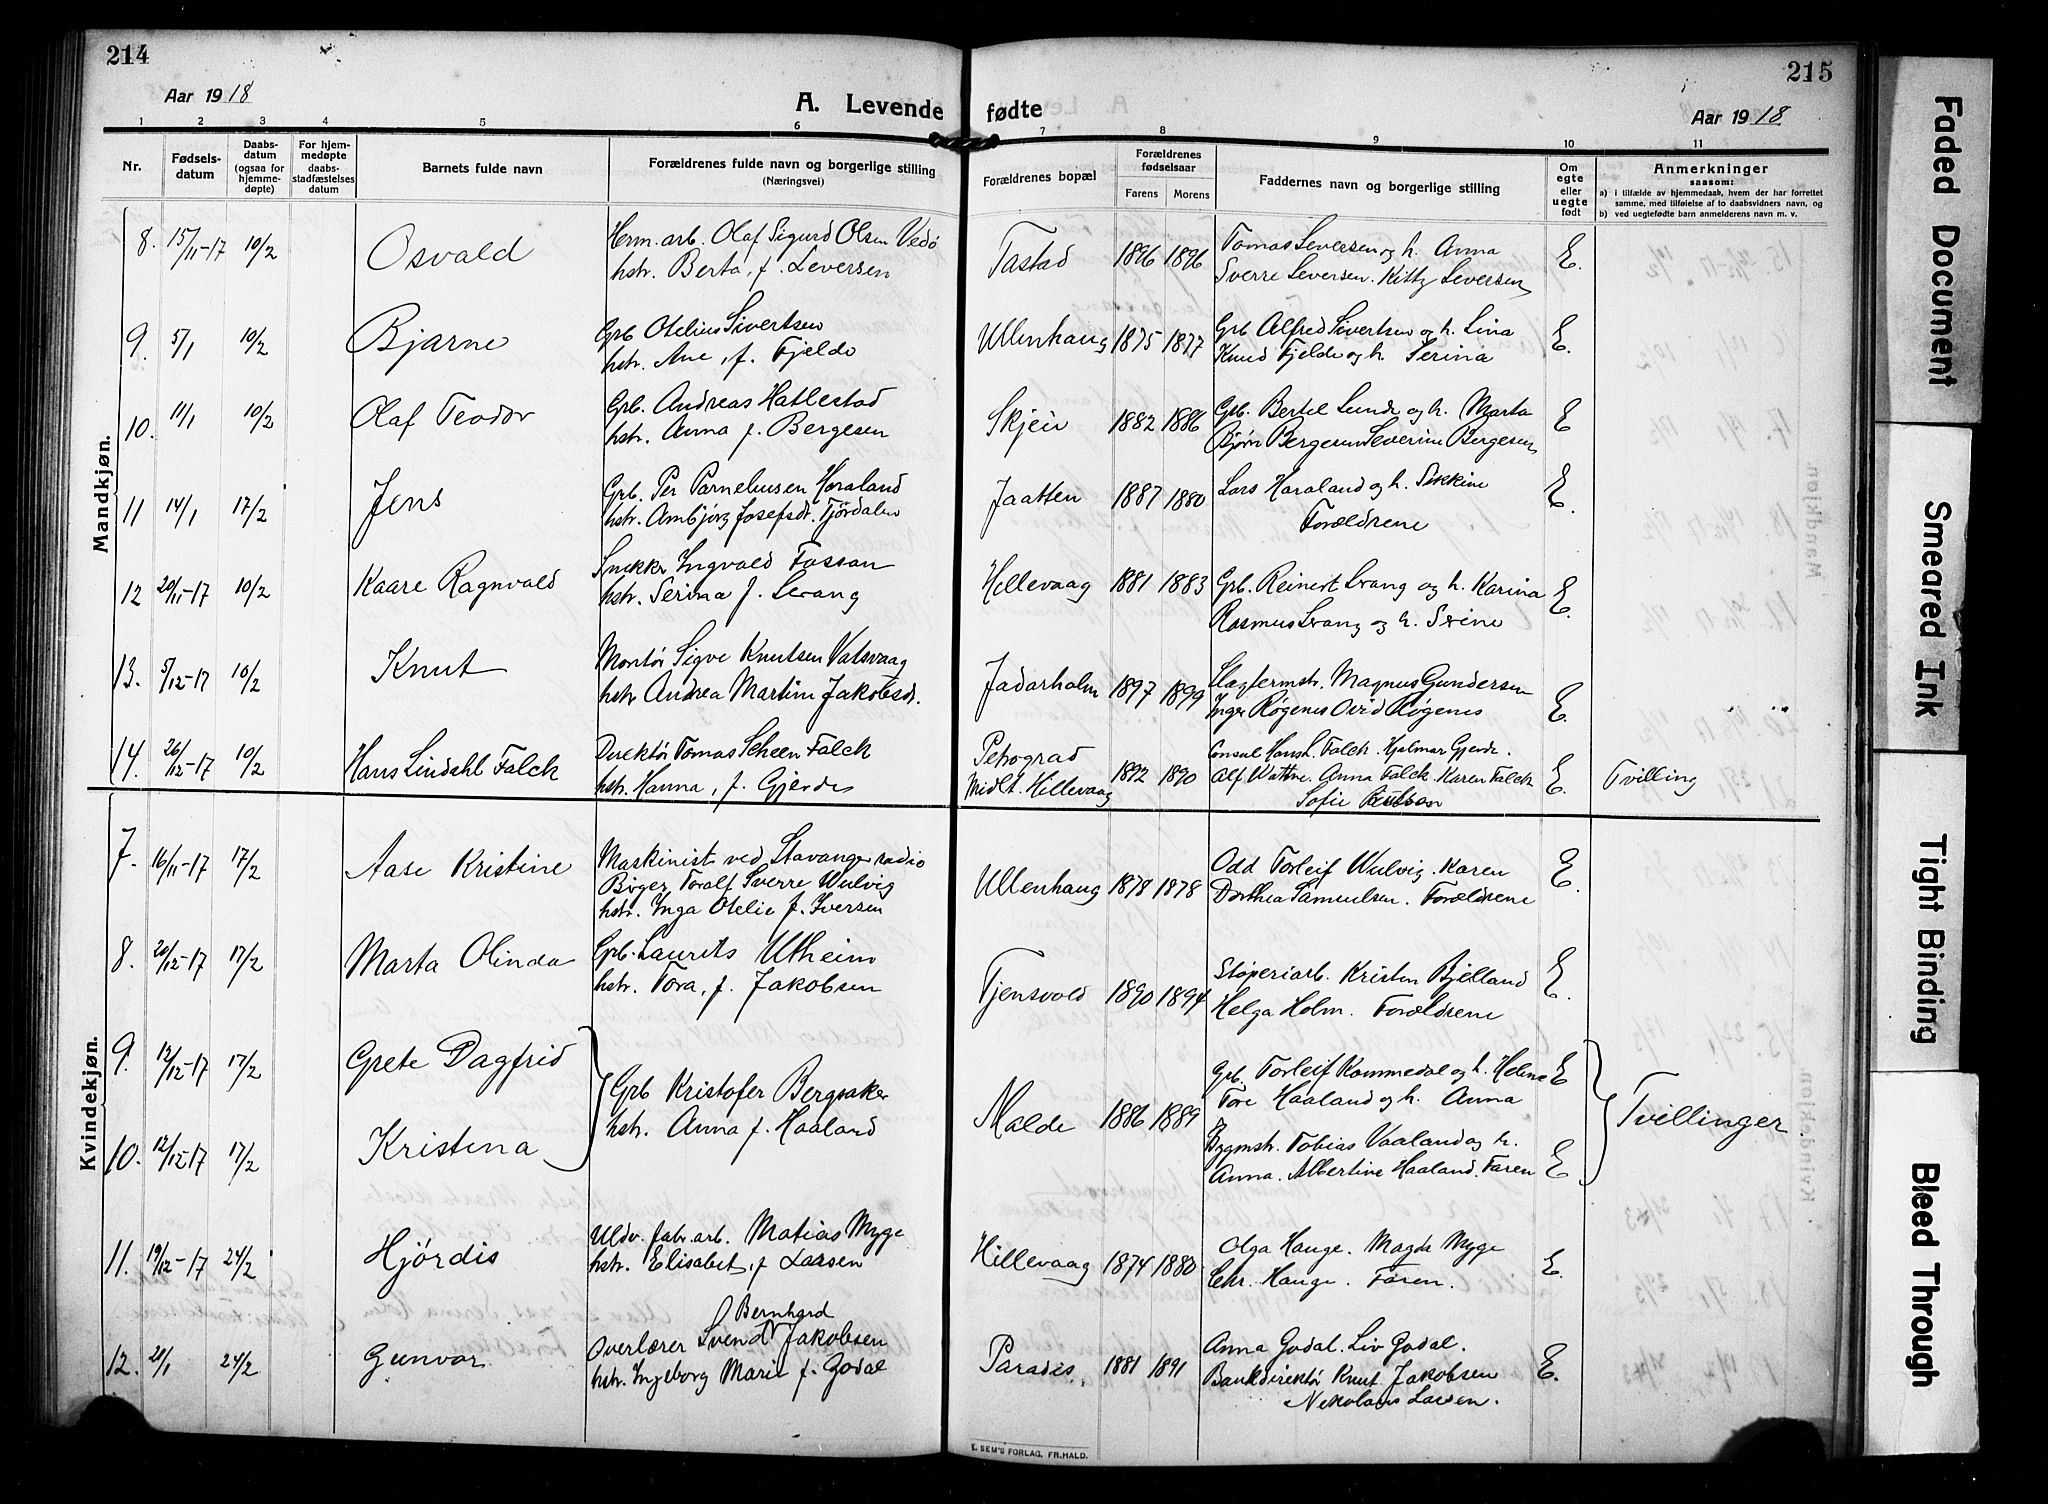 214
Aar 1918
A. Levende
1 2 3 4 5 6
Nr.
Fødsels-
datum
Daabs-
datum
(ogsaa for
hjemme-
døpte)
For hjem-
medøpte
daabs-
stadfæstelses
datum
Barnets fulde navn
Forældrenes fulde navn og borgerlige stilling
(Næringsvei)
215
fødte
Aar 1918
7 8 9 10 11
Forældrenes bopæl
Forældrenes
fødselsaar
Farens Morens
Faddernes navn og borgerlige stilling
Om
egte
eller
uegte
født
Anmerkninger
saasom:
a) i tilfælde av hjemmedaab, hvem der har forrettet
samme, med tilføielse af to daabsvidners navn, og
b) ved uegtefødte barn anmelderens navn m. v.
Mandkjøn.
8. 15/11-17 10/2 Osvald
Herm. arb. Olaf Sigurd Olsen Vedø
hstr. Berta, f. Leversen
Tastad 1896 1896
Tomas Seversen og h. Anna
Sverre Seversen. Kitty Seversen
E.
9. 5/1 10/2 Bjarne
Grb Otelius Sivertsen
hstr. Ane, f. Fjelde
Ullenhaug 1875 1877
Grb Alfred Sivertsen og h. Lina
Knud Fjelde og h. Serina
E.
10. 11/1 10/2 Olaf Teodor
Grb. Andreas Hatlestad
hstr. Anna f. Bergesen
Skjeie 1882 1886
Grb. Bertel Lunde og h. Marta
Bjørn Bergesen Severine Bergesen
E
11 14/1 17/2 Jens
Grb. Per Parneliusen Høraland
hstr. Ambjørg Josefsdt. Tjørdalen
Jaatten 1887 1880
Lars Haraland og h. Sikkine
Forældrene
E.
12 20/11-17 10/2 Kaare Ragnvald
Snekker Ingvald Fossan
hstr. Serina f. Levang
Hillevaag 1881 1883
Grb. Reinert Levang og h. Karina
Rasmus Levang og h. Serine
E.
13. 5/12-17 10/2 Knut
Montør Sigve Knutsen Vatsvaag
hstr Andrea Martine Jakobsdt.
Jadarholm 1897 1899
Slagtermstr. Magnus Gundersen
Inger Røgenes Ovid Røgenes
E.
14. 26/12-17 10/2 Hans Lindahl Falck
Direktør Tomas Scheen Falck
hstr. Hanna, f. Gjerde
Petrograd
Midlt. Hillevaag 1892 1890
Consul Hans L. Falck. Hjalmar Gjerde.
Alf Wattne. Anna Falck. Karen Falck
Sofie
E.
Tvilling
Kvindekjøn.
7. 16/11-17 17/2 Aase Kristine
Maskinist ved Stavanger radio
Birger Toralf Sverre Wulvig
hstr. Inga Otelie f. Iversen
Ullenhaug 1878 1878
Odd Torleif Wulvig. Karen
Dorthea Samuelsen. Forældrene
E.
8. 20/12-17 17/2 Marta Olinda
Grb. Laurits Utheim
hstr. Tora, f. Jakobsen
Tjensvold 1890 1894
Støperiarb. Kristen Bjelland
Helga Holm. Forældrene
E.
9. 12/12-17 17/2 Grete Dagfrid
Grb Kristofer Bergsaker
hstr. Anna f. Haaland
10. 12/12-17 17/2 Kristina
Malde 1886 1889
Grb. Torleif Kommedal og h. Helene
Tore Haaland og h. Anna
Bygmstr. Tobias Vaaland og h.
Anna. Albertine Haaland. Faren
E
E
Tvillinger.
11. 19/12-17 24/2 Hjørdis
Uldv. fabr. arb. Matias Myge
hstr. Elisabet, f Larsen
Hillevaag 1874 1880
Olga Hauge. Magda Myge
Chr. Hauge. Faren.
E.
12. 21/1 24/2 Gunvor
Bernhard
Overlærer Svend Jakobsen
hstr. Ingeborg Marie f. Godal
Paradis 1881 1891
Anna Godal. Liv Godal.
Bankdirektør Knut Jakobsen
Nikolaus Larsen.
E.
E. SEM'S FORLAG, FR.HALD.
Faded Document
Smeared Ink
Tight Binding
Bleed Through